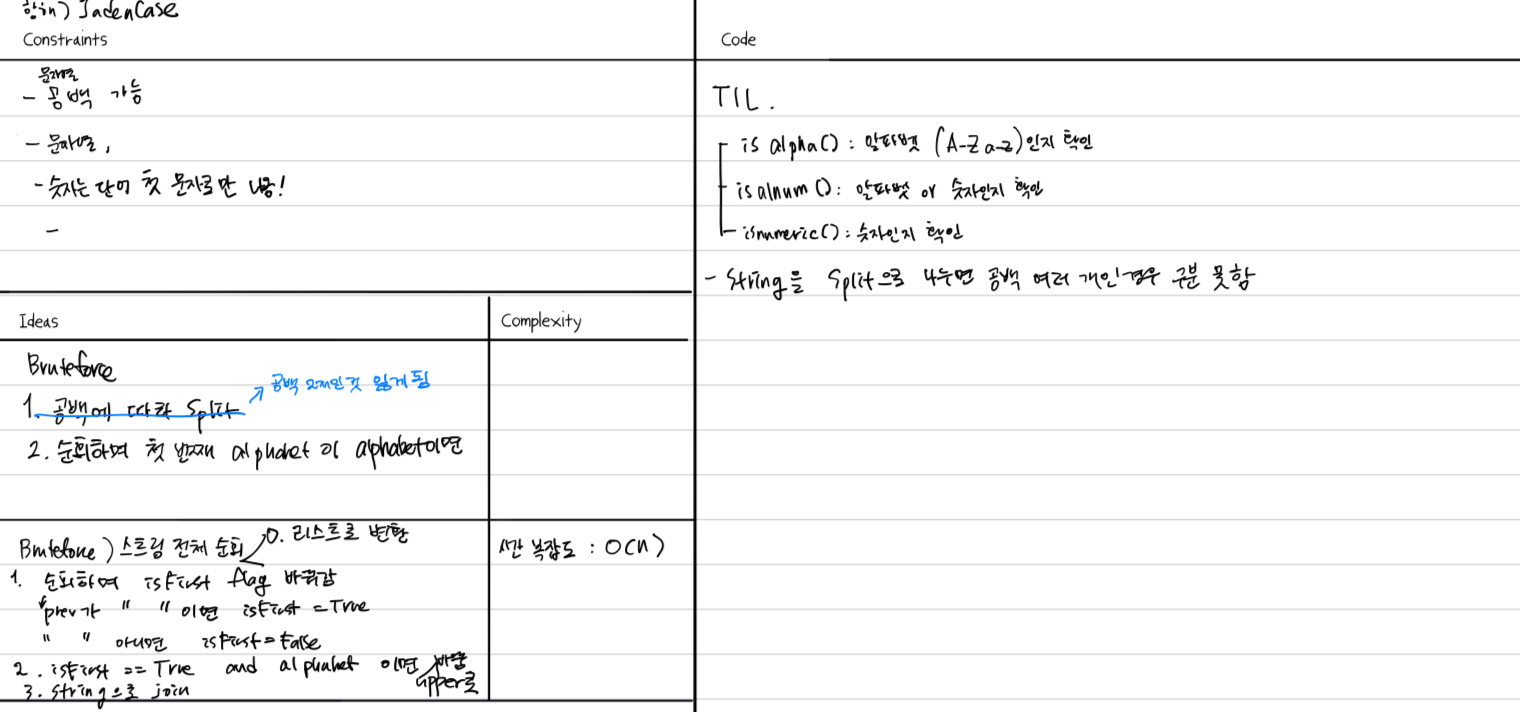 JadenCase
Constraints
문자열
- 공백 가능
- 문자열,
- 숫자는 단어 첫 문자로만 나옴!
-
Ideas
Complexity
Bruteforce
→ 공백 2개인 것 잃게 됨
1. 공백에 따라 Split
2. 순회하며 첫 번째 alphabet 이 alphabet이면
Bruteforce) 스트링 전체 순회
0. 리스트로 변환
시간 복잡도 : O(n)
1. 순회하며 isFirst flag 바뀌감
prev가 " " 이면 isFirst = True
" " 아니면 isFirst = False
2. isFirst == True and alphabet 이면 바꿈
upper로
3. string으로 join
Code
TIL.
isalpha() : 알파벳 (A-Z a-z)인지 확인
isalnum() : 알파벳 or 숫자인지 확인
isnumeric() : 숫자인지 확인
- String을 Split으로 나누면 공백 여러 개인경우 구분 못함